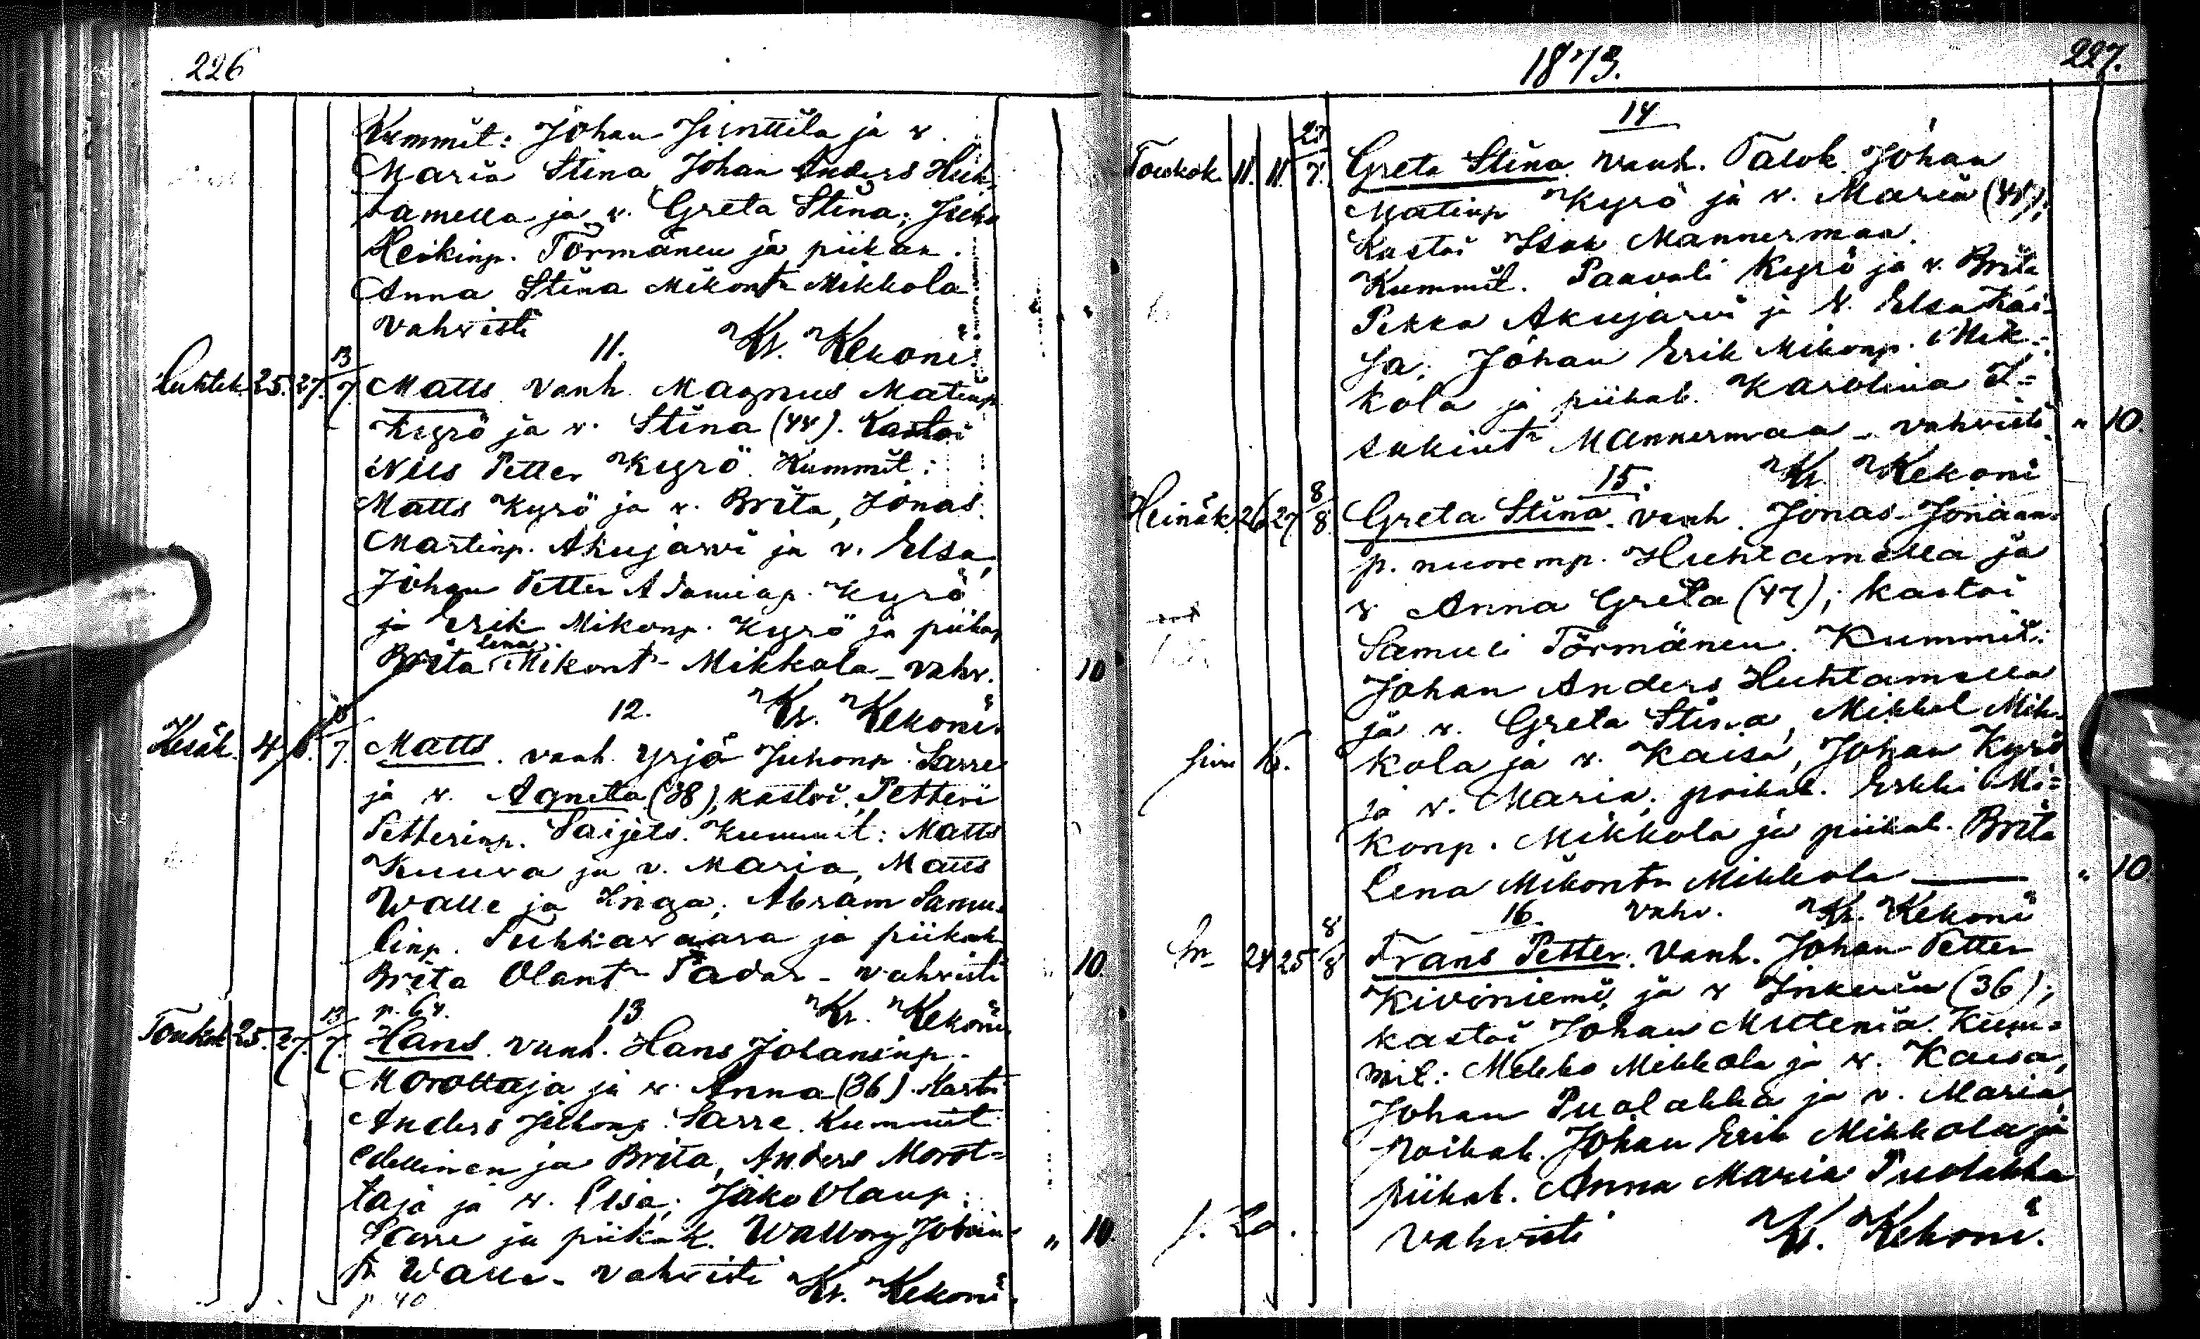 226
Kummit: Johan Junttila ja v.
Maria Stina Johan Anders Huh-
tamella ja v. Greta Stina; Juho
Heikinp. Törmänen ja piikan.
Anna Stina Mikontr Mikkola
vahvisti
11. Kr. Kekoni.
Huhtik. 25. 27. 13/7 Matts vanh. Magnus Matinp.
Kyrö ja v. Stina (44). Kastoi
Nils Petter Kyrö. Kummit:
Matts Kyrö ja v. Brita, Jonas
Martinp. Akujärvi ja v. Elsa,
Johan Petter Adaminp. Kyrö
ja Erik Mikonp. Kyrö ja piikap.
Brita Lena Mikont- Mikkola - vahv. 10
12. Kr. Kekoni.
Kesäk. 4. 6. /7. Matts. vanh. Yrjö Juhonp. Sarre
ja v. Agneta (38), kastoi, Petteri
Petterinp. Saijets. Kummit: Matts
Kuuva ja v. Maria, Matts
Walle ja Inga; Abram Samu-
linp. ja piikak
Brita Olant- Padar - vahvisti " 10
p. 64. 13 Kr. Kekoni
Toukok 25. 27. 13/7. Hans. vanh. Hans Johaninp.
Morottaja ja v. Anna (36). Kasti
Anders Juhonp. Sarre. Kummit
edellinen ja Brita, Anders Morot-
taja ja v. Elsa; Jako Olaup.
Sarre ja piikak. Walborg Johan- " 10
tr Walle - vahvisti Kr. Kekoni.
p 40
1873. 227.
14
Toukok. 11. 11. 27/7. Greta Stina vanh. Talok. Johan
Matinp Kyrö ja v. Maria (44);
Kastoi Isak Mannermaa.
Kummit. Paavali Kyrö ja v. Brita
Pekka Akujärvi ja v. Elsa Kai-
sa; Johan Erik Mikonp. Mik-
kola ja piikat. Karolina I-
sakintr Mannermaa - vahvisti " 10.
15. Kr. Kekoni
Heinäk. 26 27 8/8 Greta Stina. vanh. Jonas Jonaan-
p. nuoremp. Huhtamella ja
v Anna Greta (47); kastoi
Samuli Törmänen. Kummit:
Johan Anders Huhtamella
ja v. Greta Stina, Mikkel Mik-
kola ja v. Kaisa, Johan Kyrö
ja v. Maria; poikat. Erkki Mi-
konp. Mikkola ja piikat. Brita
Lena Mikontr Mikkola " 10
16. vahv. Kr. Kekoni
24 25 8/8 Frans Petter. Vanh. Johan Petter
Kiviniemi ja v Inkeriu (36);
kastoi Johan Mutenia. Kum-
mit: Mikko Mikkola ja v. Kaisa,
Johan Puolakka ja v. Maria,
Poikat. Johan Erik Mikkola ja
piikat. Anna Maria Puolakka
vahvisti Kr. Kekoni.